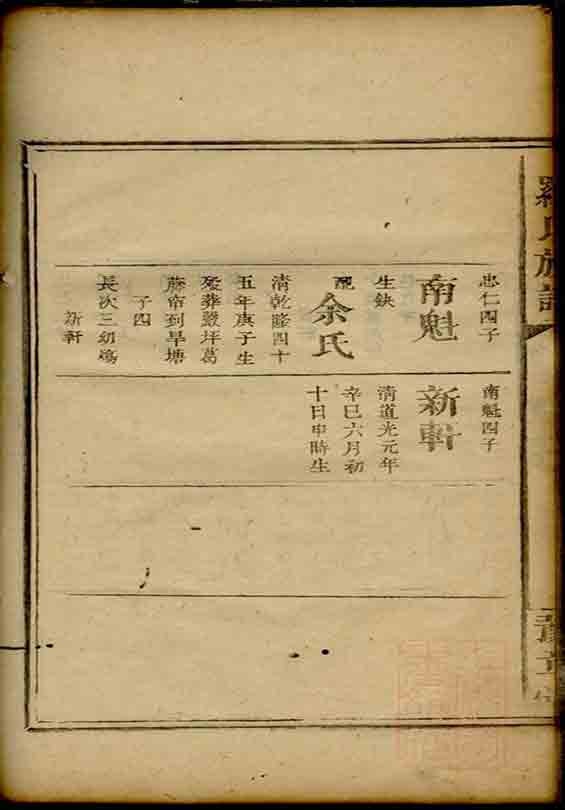 羅氏族譜
忠仁四子
南魁
生缺
配余氏
清乾隆四十
五年庚子生
歿葬藂坪葛
藤帘到旱塘
子四
長次三幼殤
新軒
南魁四子
新軒
清道光元年
辛巳六月初
十日申時生
豫章堂